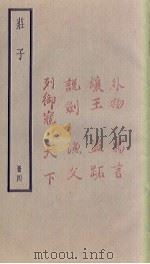 莊子
冊四
外物 寓言
讓王 盜跖
說劍 漁父
列御寇 天下